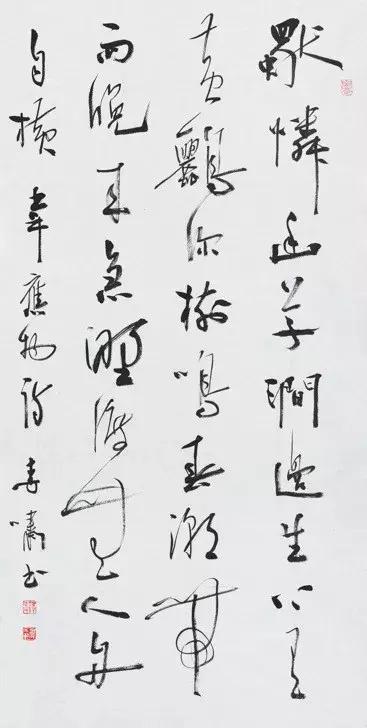 獨憐幽草澗邊生上有
黃鸝深樹鳴春潮帶
雨晚來急野渡無人舟
自橫 韋應物詩 李嘯書